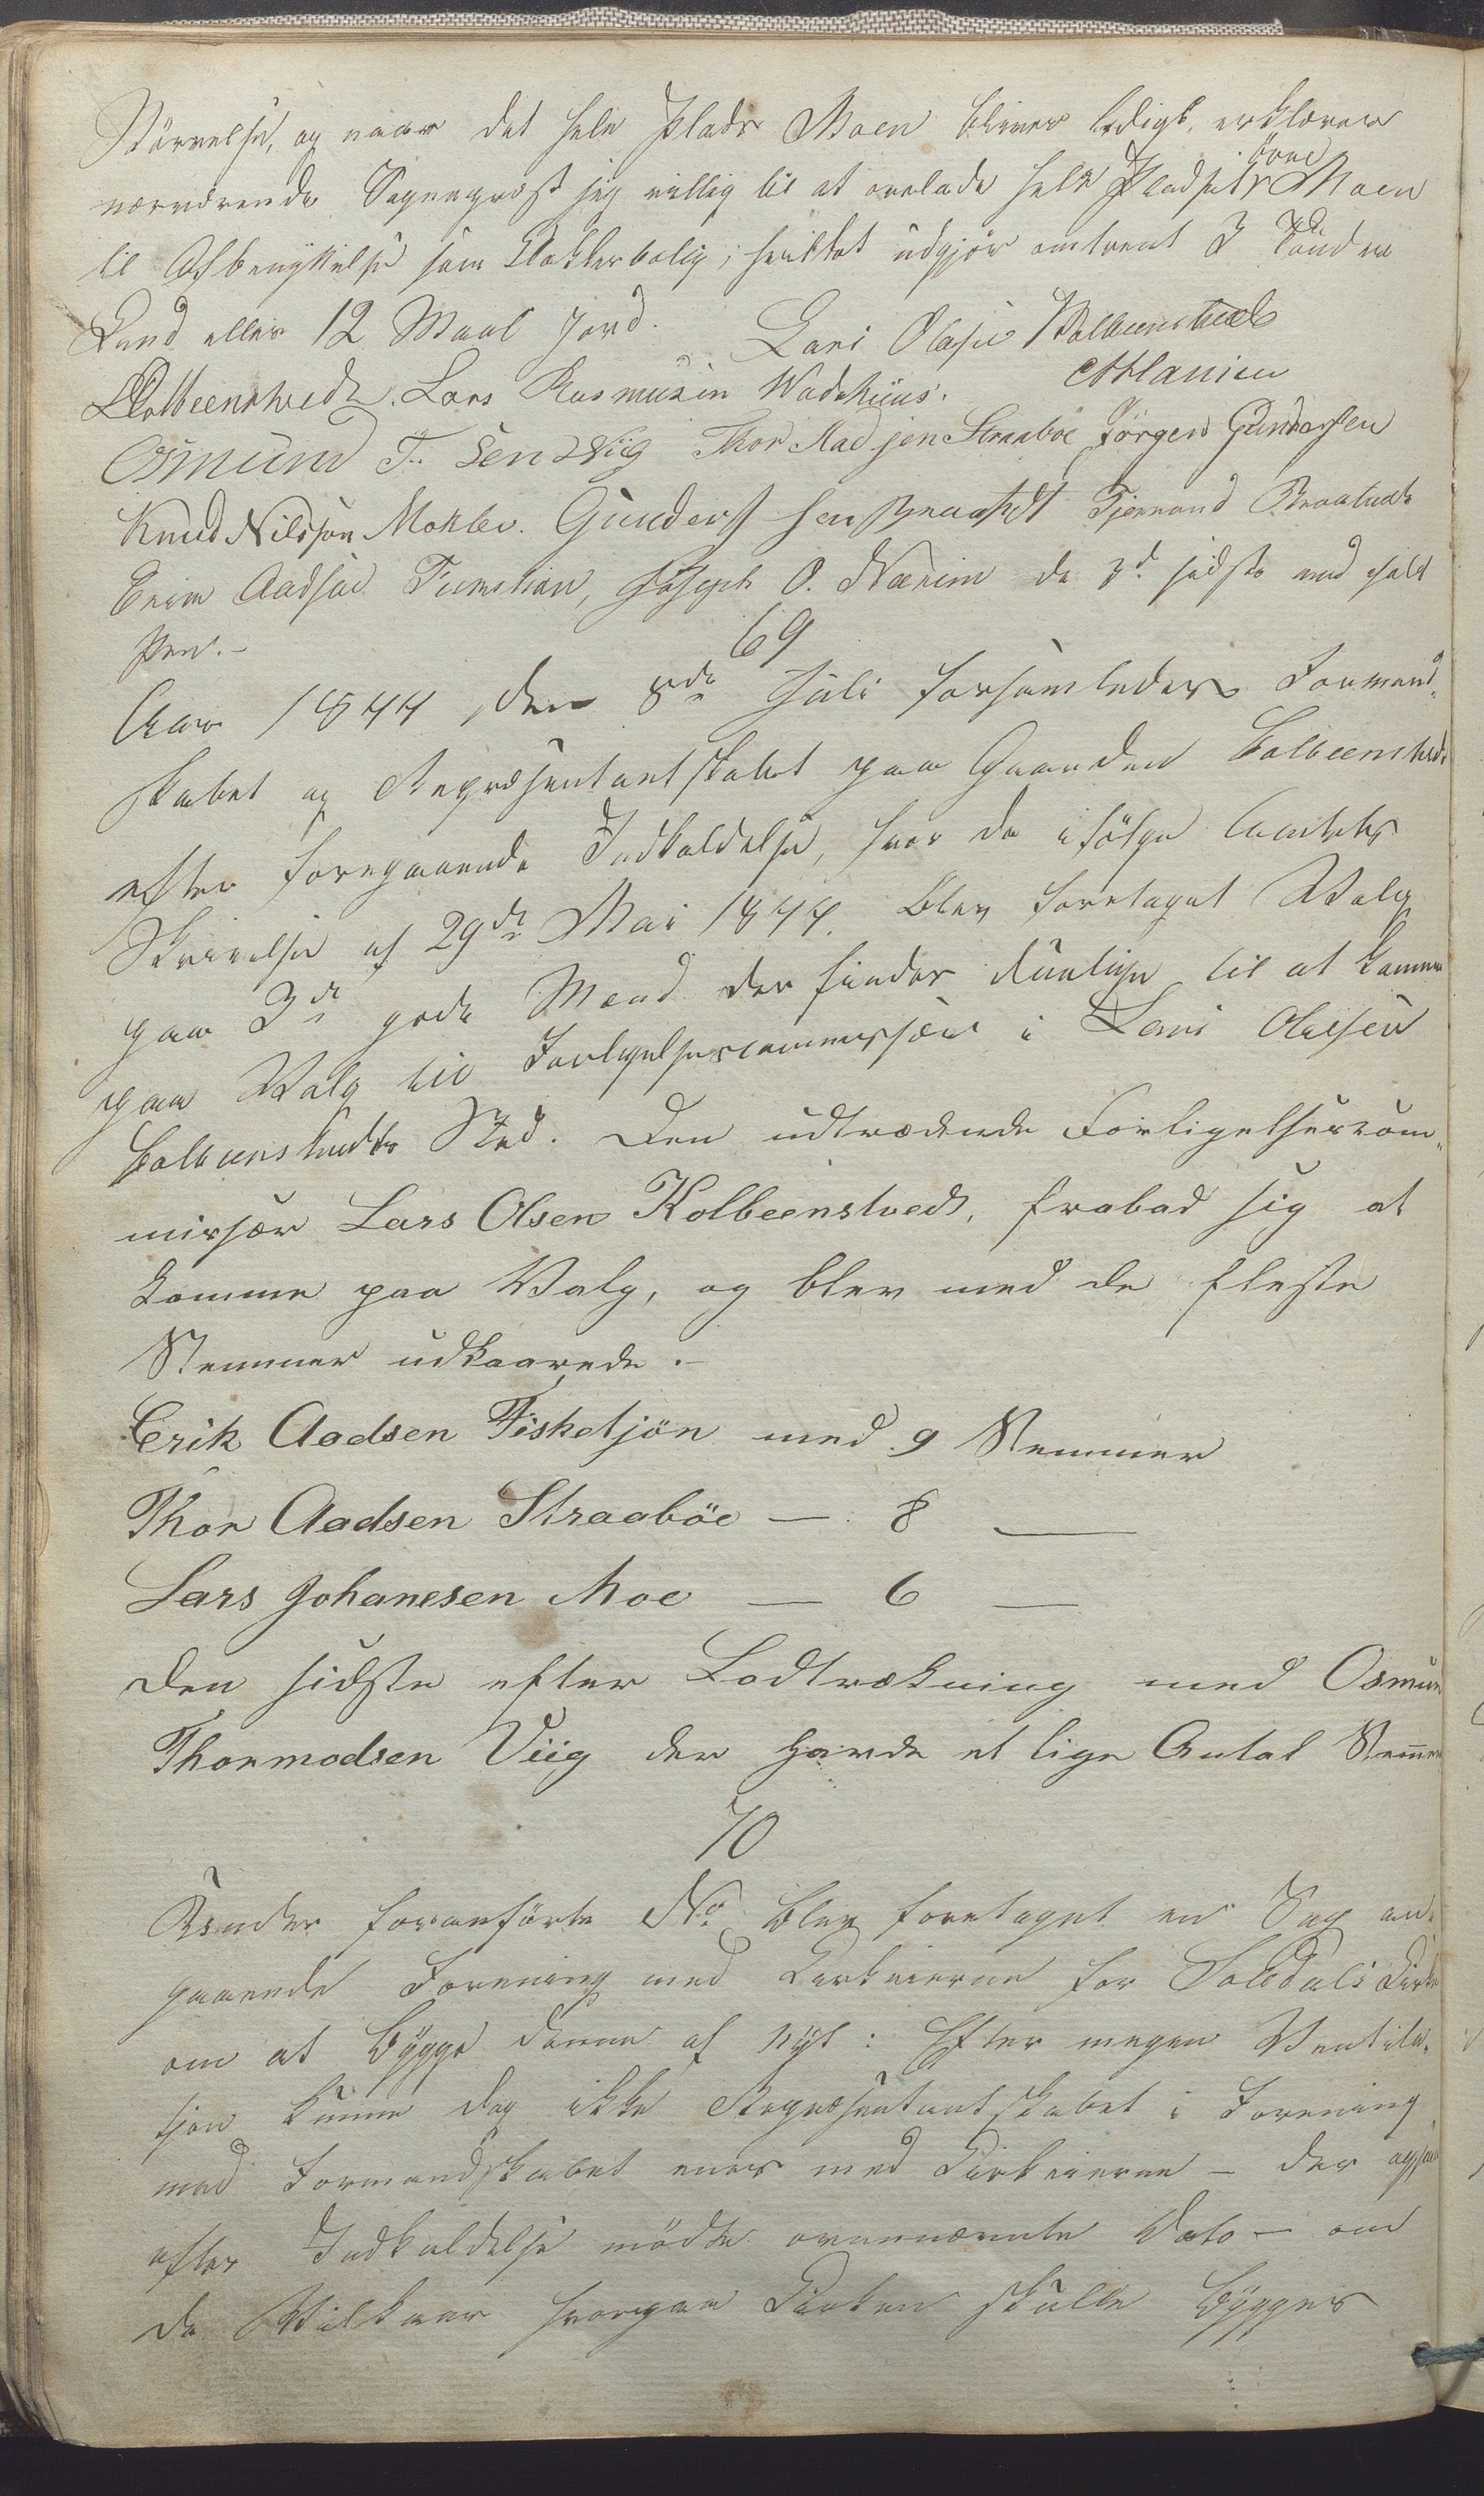 Störrelse, og naar det hele Plads Moen bliver ledigt, erklærer
nærværende Sognepræst sig villig til at overlade hele Pladset övre Moen
til Afbenyttelse som Klokkerbolig; hvilket udgjör omtrent 3 Tönder
Land eller 12 Maal Jord. Lars Olsen Kolbeenstvedt
Kolbeenstvedt. Lars Rasmusen Wadshuus.
Osmund T. Sen Viig Thor Aadsen Straaböe Jörgen Gundersen
Knud Nilsson Mokler. Gunders sen Braatedt Tjerrand Braatvedt
Erik Aadsen Fisketjön, Joseph O. Nærim de 3de sidste med paaholdt
Pen.-
69
Aar 1844 den 8de Juli forsamledes Formand-
skabet og Repræsentantskabet paa Gaarden Kolbeenstvedt
efter foregaaende Indkaldelse, hvor da ifölge Amtets
Skrivelse af 29de Mai 1844. blev foretaget Valg
paa 3de gode Mænd der findes duelige til at komme
paa Valg til Forligelsescommissær i Lars Olsen
Kolbeenstvedts Sted. Den udtrædende Forligelsescom-
missær Lars Olsen Kolbeenstvedt, frabad sig at
komme paa Valg, og blev med de fleste
Stemmer udkaarede.-
Erik Aadsen Fisketjön med 9 Stemmer
Thor Aadsen Straaböe — 8 —
Lars Johanesen Moe — 6 —
den sidste efter Lodtrækning med Osmun
Thormodsen Viig der havde et lige Antal Stemmer
70
Under foranförte No blev foretaget en Sag an-
gaaende Forening med Kirkeierne for Solsdals Kirke
om at bygge denne af nyt: Efter megen Ventila-
tjon kunne dog ikke Repræsentantskabet i Forening
med Formandskabet enes med Kirkeierne - der ogsaa
efter Indkaldelse mödte ovennævnte Dato - om
de Vilkaar hvorpaa Kirken skulle bygges